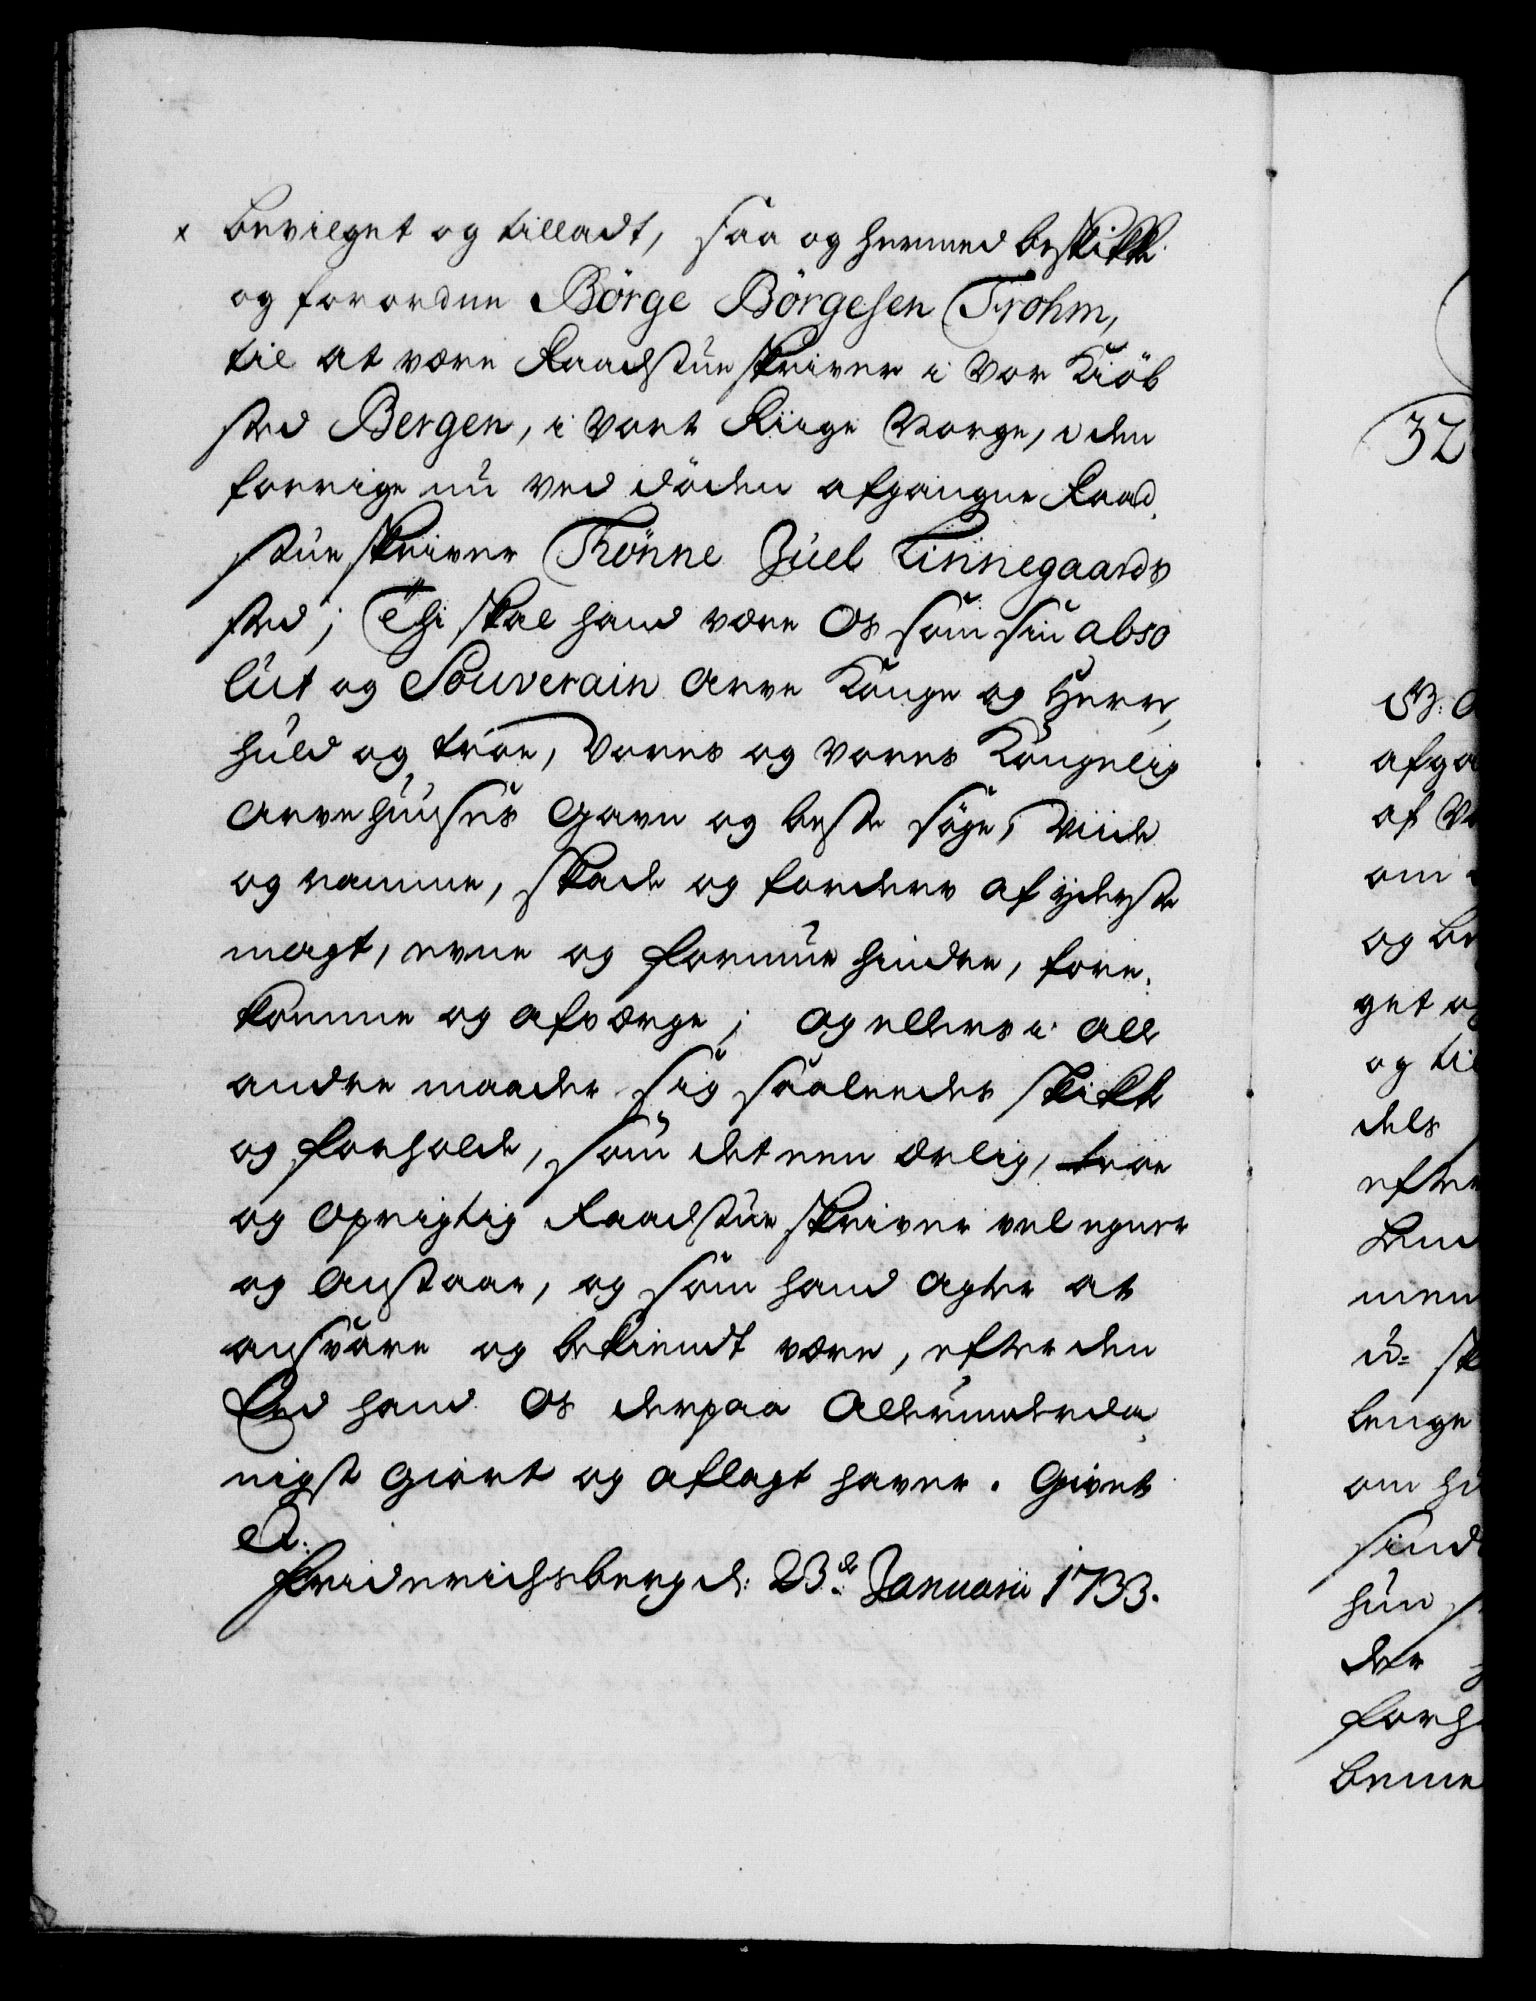 x bevilget og tilladt, saa og hermed beskikke
og forordne Börge Börgesen Trohm,
til at være Raadstueskriver i Vor Kiöb
sted Bergen, i Vort Riige Norge, i den
forrige nu ved döden afgangne Raad
stueskriver Thönne Juel Linnegaards
sted; Thi skal hand være Os som sin abso
lut og Souverain Arve Konge og Herre,
huld og troe, Vores og Vores Kongelig
Arvehuuses Gavn og beste söge, Viide
og ramme, skade og forderv af yderste
magt, evne og formue hindre, fore
komme og afværge; og ellers i all
andre maader sig saaleedes skikke
og forholde, som det een ærlig, troe
og oprigtig Raadstueskriver vel egner
og anstaar, og som hand agter at
ansvare og bekiendt være, efter den
Eed hand Os derpaa Allerunderda
nigst giort og aflagt haver. Givet
et.
Friderichsberg d: 23de Januarii 1733.
32
afga
af V
om
og be
get og
og til
dels
efter
men
u= sk
lenge
om hu
sind
hun
der
forh